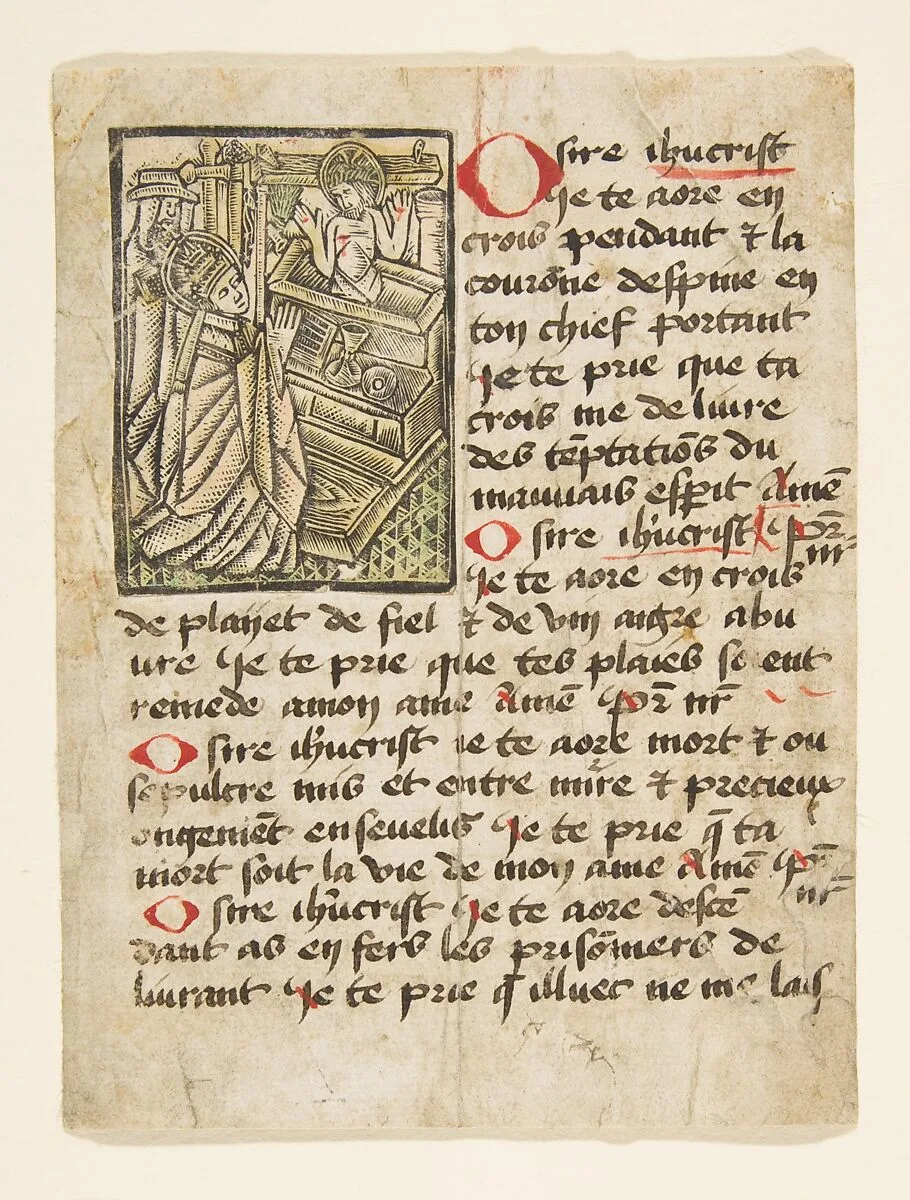 O sire ihucrist
Je te aore en
crois pendant ⁊ la
courōne despine en
ton chief portant
Je te prie que ta
crois me deliure
des tēptatiōs du
mauuais esperit Amē
O sire ihucrist Pr̄
nr̄
Je te aore en crois
de playet de fiel ⁊ de vin aigre abu
ure Je te prie que tes plaies soient
remede amon ame Amē Pr̄ nr̄
O sire ihucrist ie te aore mort ⁊ ou
sepulcre mis et entre mirre ⁊ precieux
ongemēt enseuelis Je te prie q̄ ta
mort soit la vie de mon ame Amē Pr̄
nr̄
O sire ihucrist Je te aore descē
dant as enfers les prisōniers de
liurant Je te prie q̄ illuec ne me lais